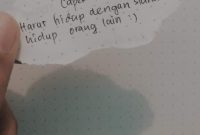 Capek
Harus hidup dengan
hidup orang lain :)